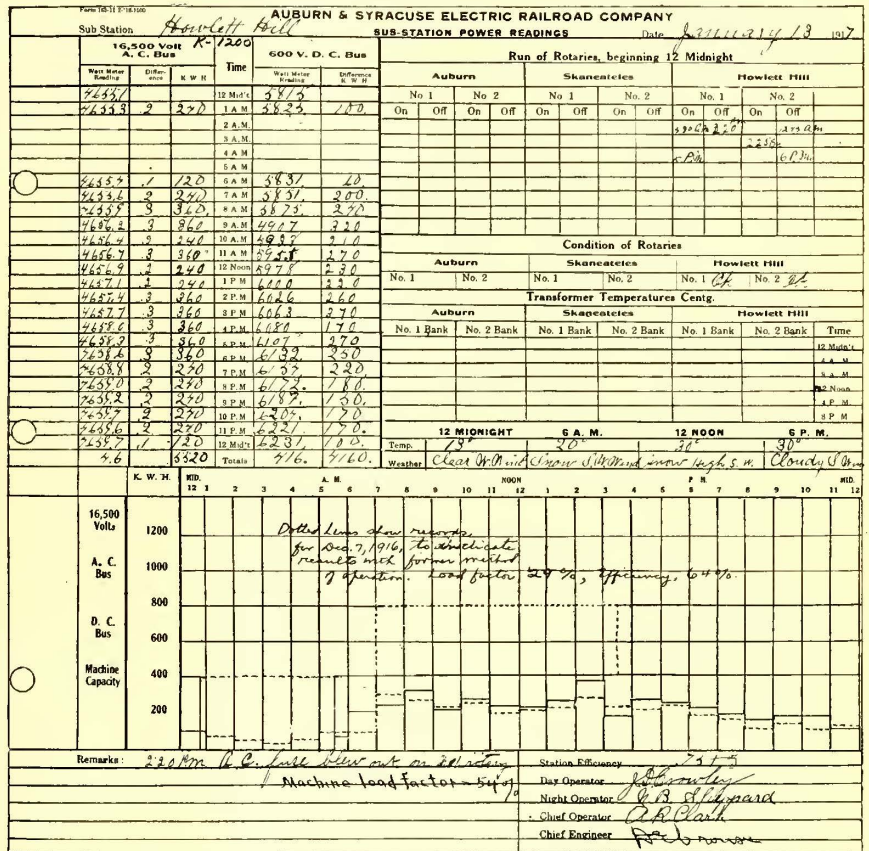 Form 183-11
AUBURN & SYRACUSE ELECTRIC RAILROAD COMPANY
Sub Station Howlett Hill SUB-STATION POWER READINGS Date January 13 1917
16,500 Volt A. C. Bus K-1200 Time 600 V. D. C. Bus
Watt Meter Reading Difference K W H Watt Meter Reading Difference K W H
46551 12 Mid't 5815
46553 .2 240 1 A M 5825 100
2 A.M.
3 A.M.
4 A M
5 A M
4655.4 .1 120 6 A M 5831 60
4655.6 .2 240 7 A M 5851 200
4655.9 .3 360 8 A M 5875 240
4656.2 .3 360 9 A.M 4907 320
4656.4 .2 240 10 A.M 210
4656.7 .3 360 11 A M 5955 270
4656.9 .2 240 12 Noon 5978 230
4657.1 .2 240 1 P M 6000 220
4657.4 .3 360 2 P.M 6026 260
4657.7 .3 360 3 P M 6063 370
4658.0 .3 360 4 P.M 6080 170
4658.3 .3 360 5 P.M 6107 270
4658.6 .3 360 6 P.M 6132 250
4658.8 .2 240 7 P.M 6154 220
4659.0 .2 240 8 P.M 6172 180
4659.2 .2 240 9 P.M 6187 150
.2 240 10 P.M 6204 170
4659.6 .2 240 11 P.M 6221 170
4659.7 .1 120 12 Mid't 6231 100
4.6 5520 Totals 416. 4160.
Run of Rotaries, beginning 12 Midnight
Auburn Skaneateles Howlett Hill
No 1 No 2 No 1 No. 2 No. 1 No. 2
On Off On Off On Off On Off On Off On Off
6 P.M.
Condition of Rotaries
Auburn Skaneateles Howlett Hill
No. 1 No. 2 No. 1 No. 2 No. 1 No. 2
Transformer Temperatures Centg.
Auburn Skaneateles Howlett Hill
No. 1 Bank No. 2 Bank No. 1 Bank No. 2 Bank No. 1 Bank No. 2 Bank Time
12 Midn't
4 A. M
8 A. M
12 Noon
4 P. M.
8 P M
12 MIDNIGHT 6 A. M. 12 NOON 6 P. M.
Temp. 20° 30° 30°
Weather Clear W. Wind Snow S.W Wind Snow High S. W. Cloudy S Wind
K. W. H. MID. A. M. NOON P M. MID.
12 1 2 3 4 5 6 7 8 9 10 11 12 1 2 3 4 5 6 7 8 9 10 11 12
16,500 Volts 1200
A. C. Bus 1000
800
D. C. Bus 600
Machine Capacity 400
200
Dotted Lines show records,
for Dec. 7, 1916, to indicate
results with former method
of operation. Load factor 29%, Efficiency, 64%.
Remarks: A.C. fuse blew out on rotary
Machine load factor - 54%
Station Efficiency
Day Operator J.D. Crowley
Night Operator Sheppard
Chief Operator A R Clark
Chief Engineer